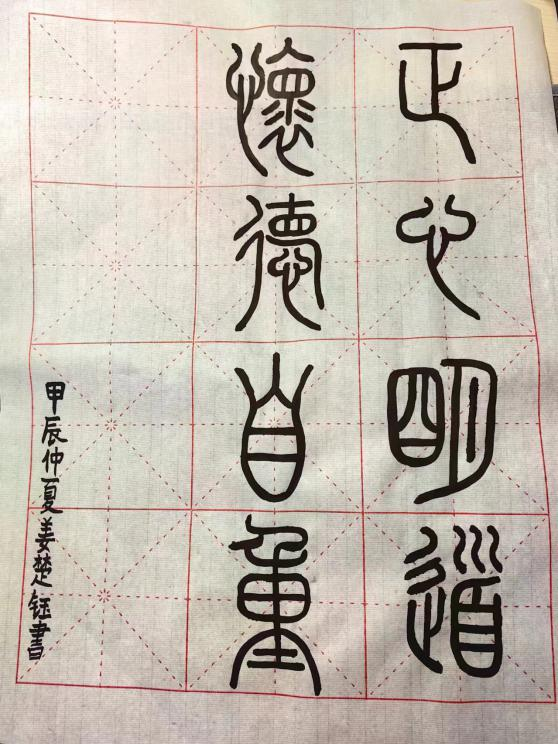 正心明道
懷德自重
甲辰仲夏姜楚钰書